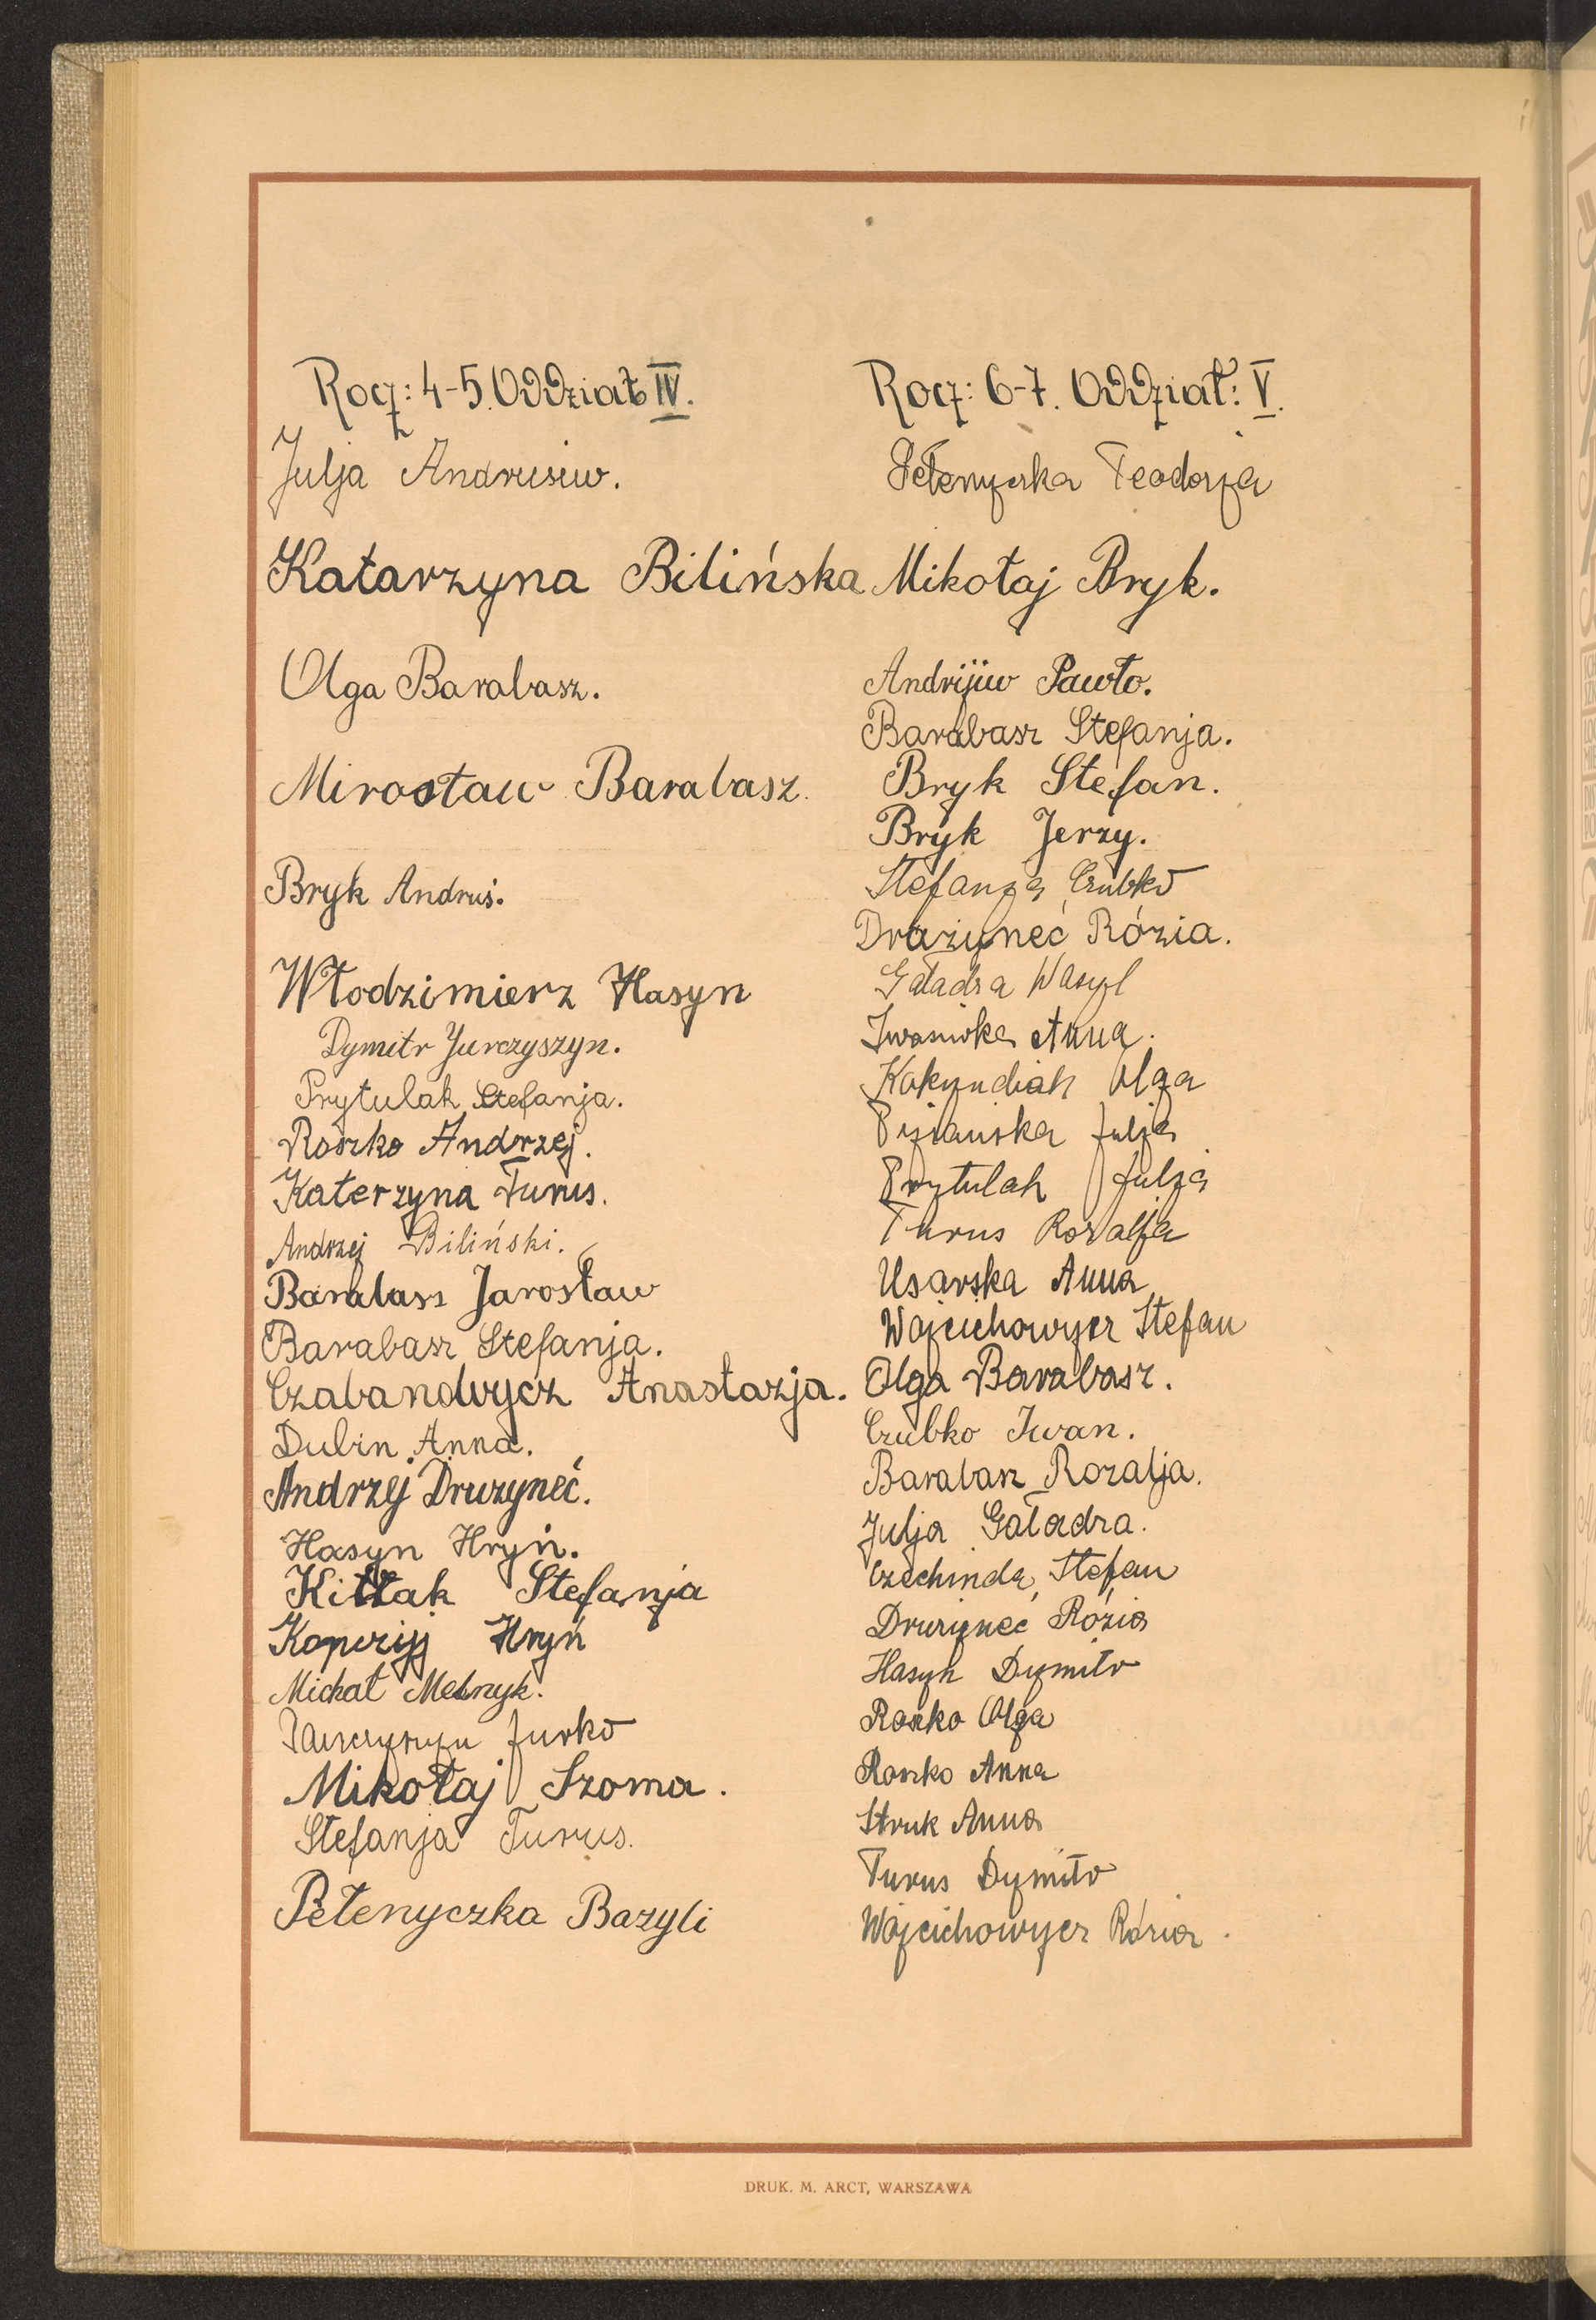 Rocz: 4-5. Oddział IV.
Julja Andrusiw.
Katarzyna Bilińska
Olga Barabasz.
Mirosław Barabasz.
Bryk Andruś.
Włodzimierz Hasyn
Dymitr Jurczyszyn.
Prytulak Stefanja.
Roszko Andrzej.
Katerzyna Turus.
Andrzej Biliński.
Barabasz Jarosław
Barabasz Stefanja.
Czabandwycz Anastazja.
Dubin Anna.
Andrzej Druzyneć.
Hasyn Hryń.
Stefanja
Hryń
Michał Melnyk.
Jurko
Mikołaj Szoma.
Stefanja Turus.
Petenyczka Bazyli
Rocz: 6-7. Oddział: V.
Petenyczka Teodozja
Mikołaj Bryk.
Andrijiw Pawło.
Barabasz Stefanja.
Bryk Stefan.
Bryk Jerzy.
Stefanja Czubko
Drażyneć Rózia.
Gaładza Wasyl
Iwasiwka Anna.
Olga
Julja
Prytulak Julja
Turus Rozalja
Usarska Anna
Wojcichowycz Stefan
Olga Barabasz.
Czubko Iwan.
Barabasz Rozalja.
Julja Gaładza.
Czechinda Stefan
Druzyneć Rózia
Hasyn Dymitr
Roszko Olga
Roszko Anna
Struk Anna
Turus Dymitr
Wojcichowycz Rózia.
DRUK. M. ARCT, WARSZAWA